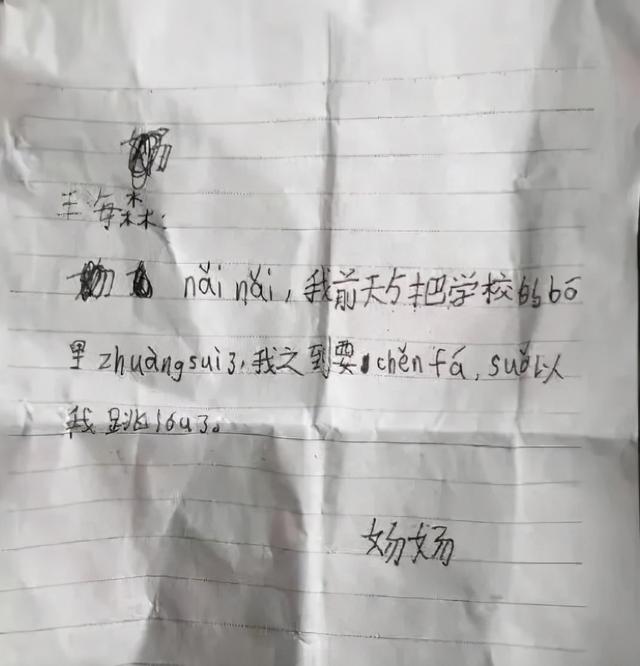 王海森:
nǎi nǎi，我前天把学校的bō
里zhuàng suì了，我之到要chěn fá，suǒ以
我跳lóu了。